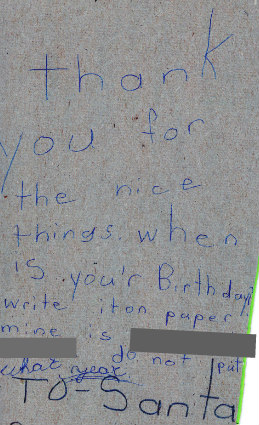 thank
you for
the nice
things. when
is you'r Birthday?
write it on paper.
mine is
do not put
what year
TO-Santa